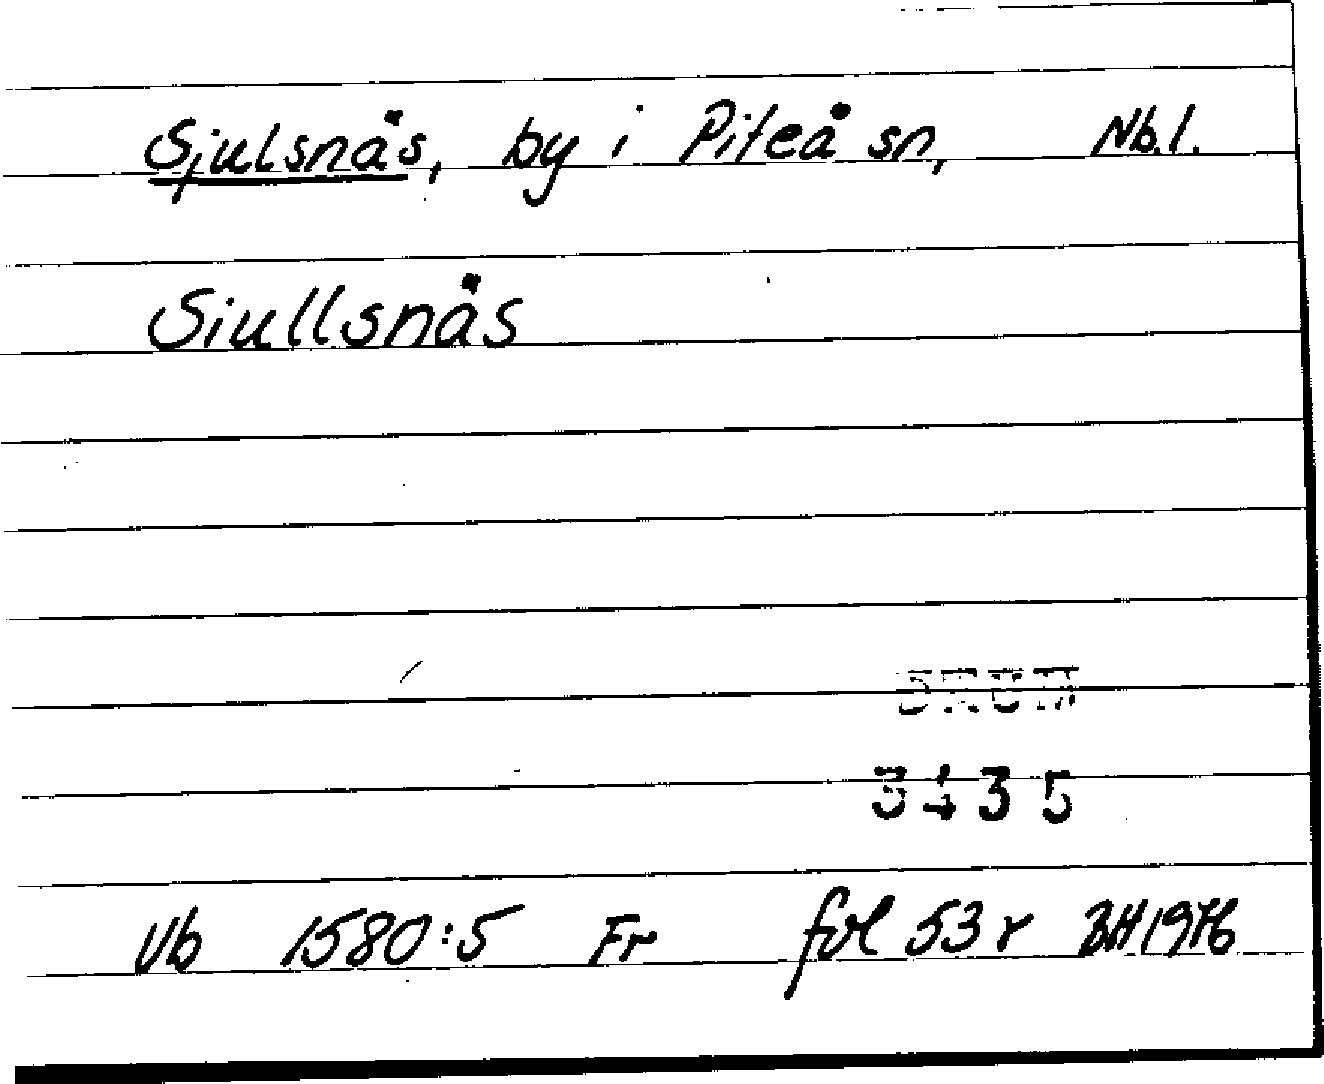 Sjulsnäs, by i Piteå sn, Nb.l.
Siullsnäs
3435
Vb 1580:5 Fr fol 53 r BH 1976